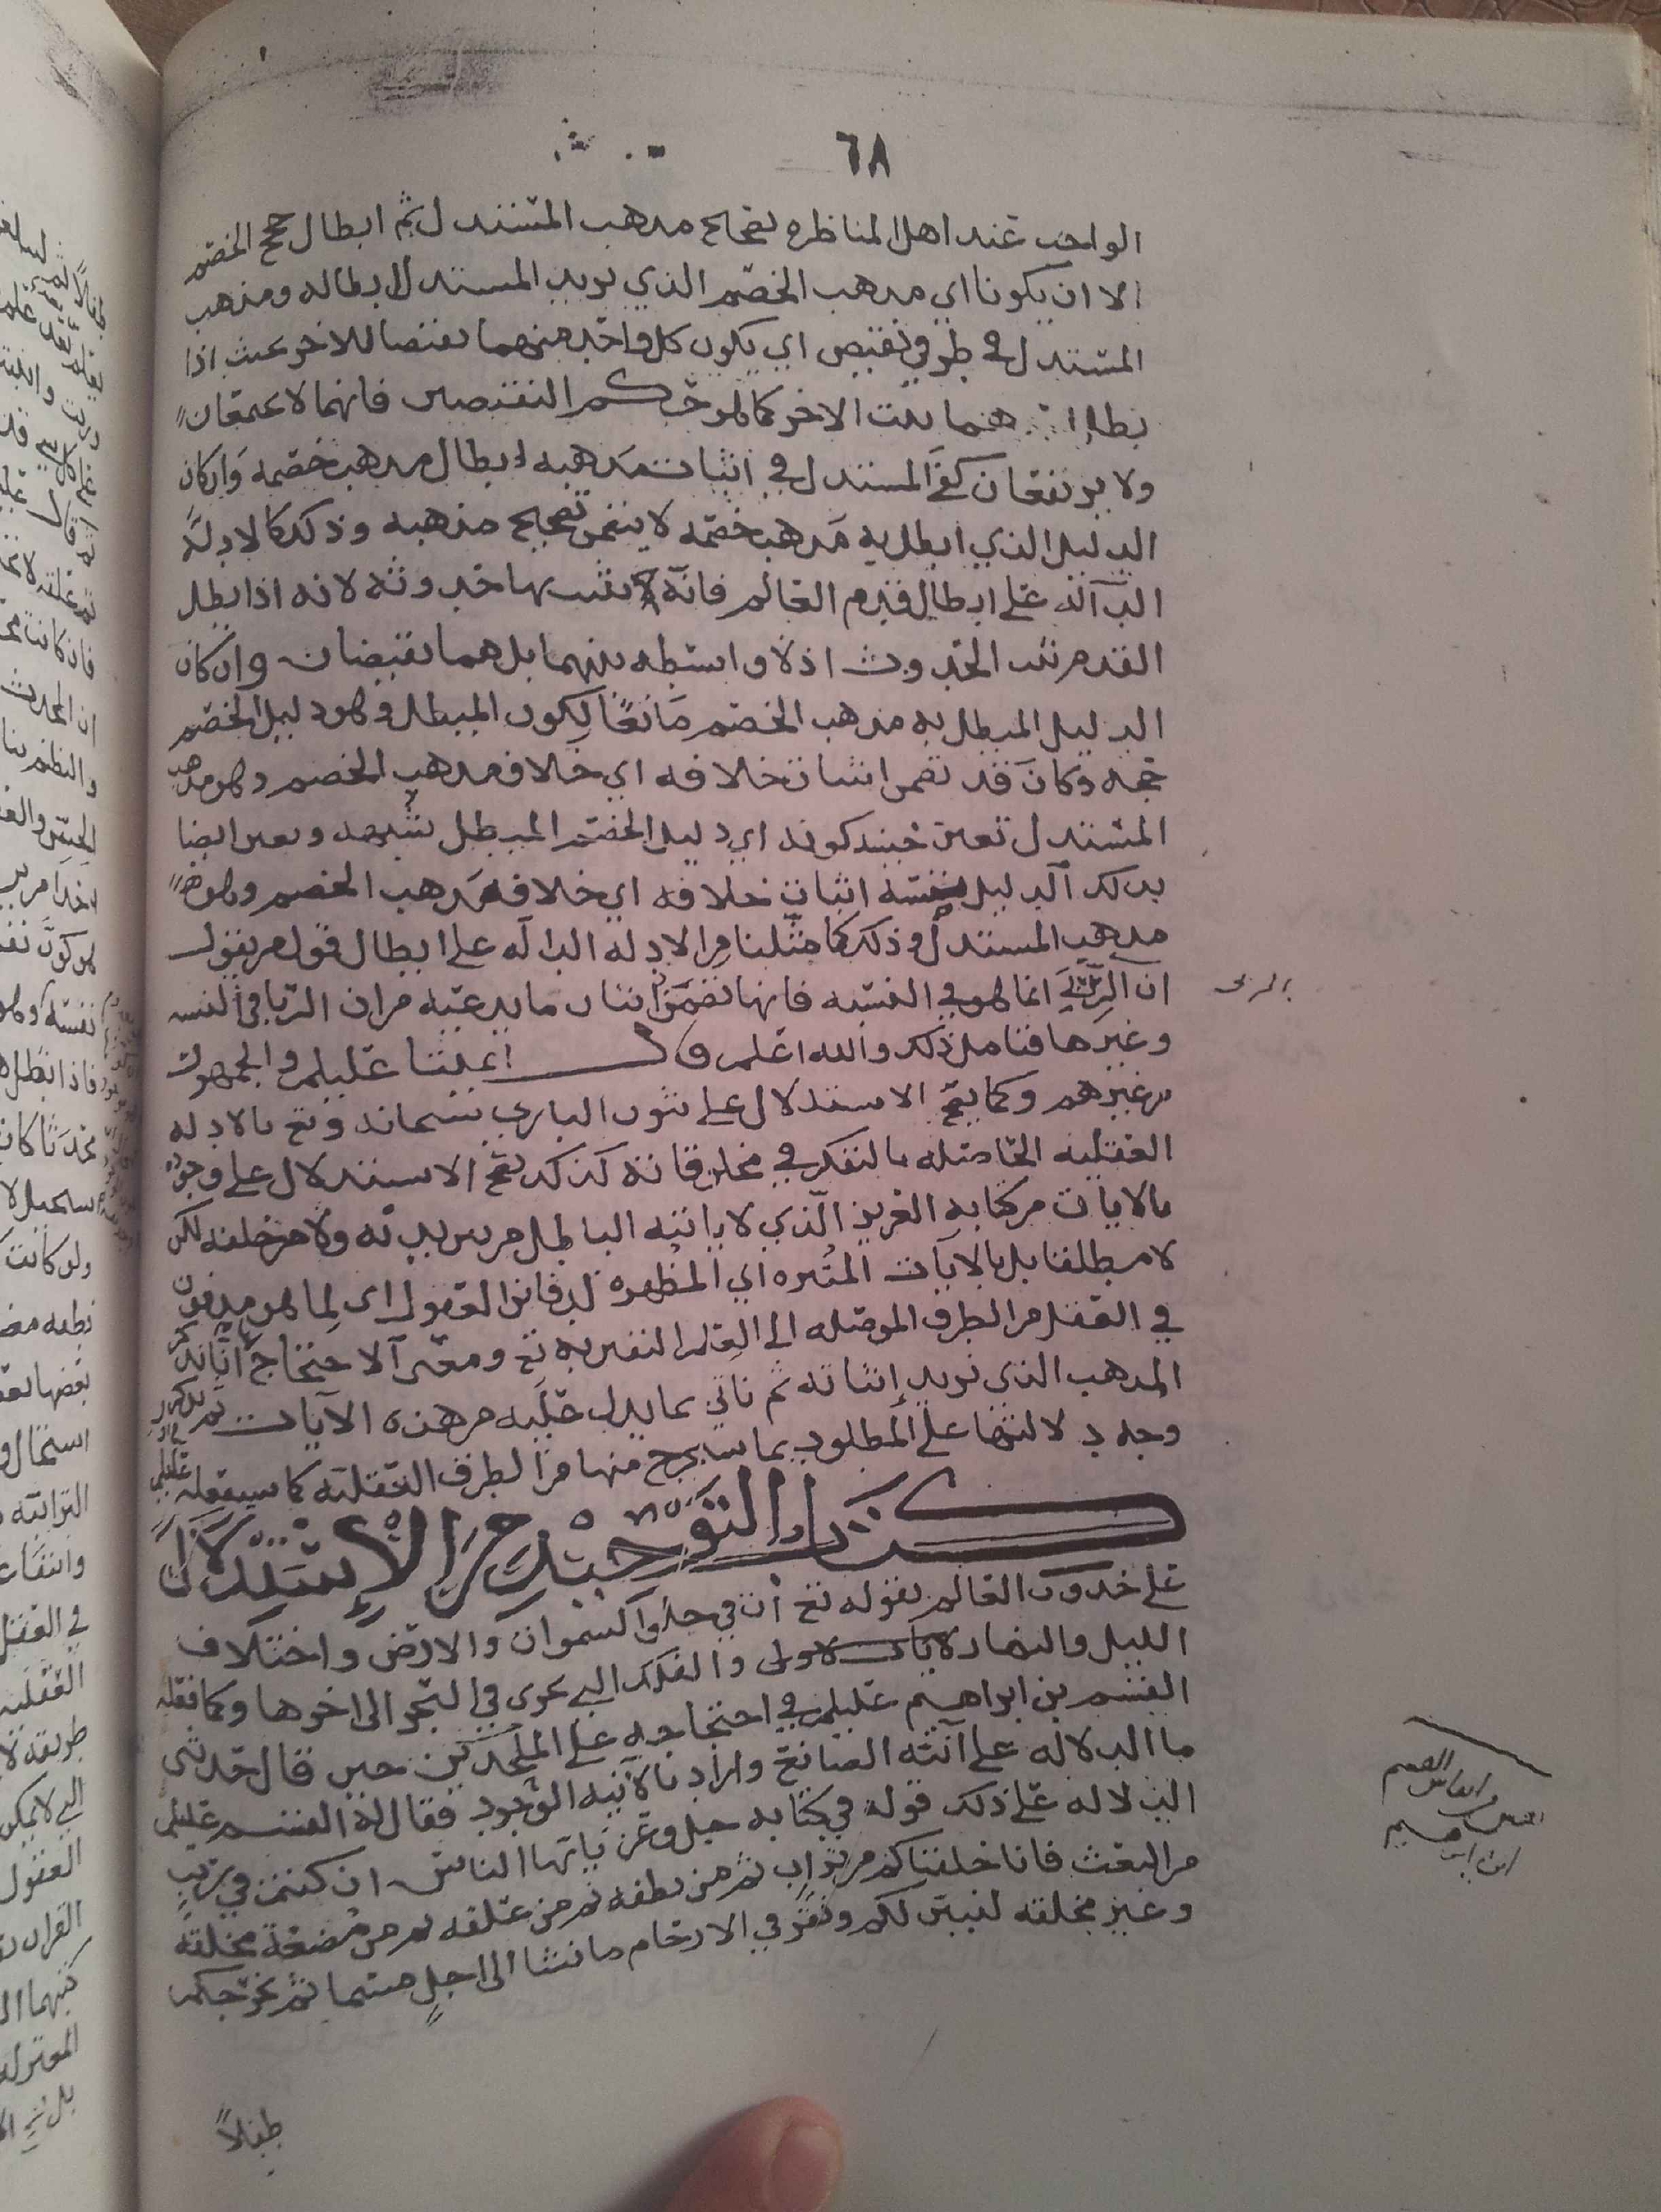 ٦٨
الواجب عند اهل المناظره تصحيح مذهب المستدل ثم ابطال حجج الخصم
الا ان يكونا اي مذهب الخصم الذي يريد المستدل ابطاله ومذهب
المستدل في طرفي نقيض اي يكون كل واحد منهما نقيضا للاخر بحيث اذا
بطل ثبت الاخر كما هو حكم النقيضين فانهما لا يجتمعان
ولا يرتفعان كفى المستدل في اثبات مذهبه ابطال مذهب خصمه وان كان
الدليل الذي ابطل به مذهب خصمه لا يتضمن تصحيح مذهبه وذلك كالادلة
الدآلة على ابطال قدم العالم فانه يثبت بها حدوثه لانه اذا بطل
القدم ثبت الحدوث اذ لا واسطه بينهما بل هما نقيضان وان كان
الدليل المبطل به مذهب الخصم مانعًا لكون المبطل وهو دليل الخصم
حجه وكان قد تضمن اثبات خلافه اي خلاف مذهب الخصم وهو مذهب
المستدل تعين حينئذ كونه اي دليل الخصم المبطل شبهه وتعين ايضا
بذلك الدليل نفسه اثبات خلافه اي خلاف مذهب الخصم وهو
مذهب المستدل وذلك كما مثلنا من الادله الدآله على ابطال قول من يقول
ان الربى انما هو في النسيه فانها تضمنت اثبات ما يدعيه من ان الربا في النسيه
وغيرها فتامل ذلك والله اعلم قال ايمتنا عليلم والجمهور
من غيرهم وكما يصح الاستدلال على ثبوت الباري سبحانه وتع بالادله
العقليه الحاصله بالتفكر في مخلوقاته كذلك يصح الاستدلال على وجوده
بالايات من كتابه العزيز الذي لا ياتيه الباطل من بين يديه ولا من خلفه لكن
لا مطلقا بل بالايات المثيره اي المظهره لدفاين العقول اى لما هو مدفون
في العقل من الطرق الموصله الى العلم اليقين به تع ومعنى الاحتجاج انا نذكر
المذهب الذي نريد اثباته ثم ناتي بما يدل عليه من هذه الآيات ثم نذكر
وجه دلالتها على المطلوب بما يستخرج منها من الطرق العقليه كما سيفعله عليلم في اول
كتاب التوحيد من الإستدلال
على حدوث العالم بقوله تع ان في خلق السموات والارض واختلاف
الليل والنهار لايات لاولى والفلك التي تجرى في البحر الى اخرها وكما فعله
القسم بن ابراهيم عليلم في احتجاجه على الملحدين حين قال حدثني
ما الدلاله على آنيّة الصانع واراد بالآنيه الوجود فقال له القسم عليلم
الدلاله على ذلك قوله في كتابه جل وعز يا يها الناس ان كنتم في ريب
من البعث فانا خلقناكم من تراب ثم من نطفه ثم من علقه ثم من مضغة مخلقة
وغير مخلقه لنبين لكم ونقر في الارحام ما نشا الى اجل مسما ثم نخرجكم
طفلاً
الربى
القسم
ابن ابرهيم